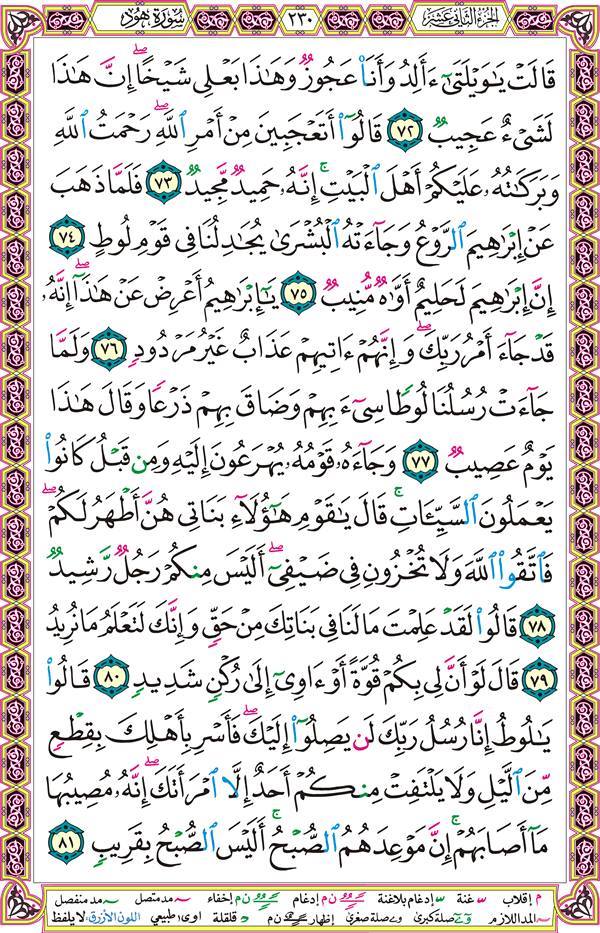 الجزء الثاني عشر ٢٣٠ سورة هود
قَالَتْ يَٰوَيْلَتَىٰٓ ءَأَلِدُ وَأَنَا۠ عَجُوزٌ وَهَٰذَا بَعْلِى شَيْخًا ۖ إِنَّ هَٰذَا
لَشَىْءٌ عَجِيبٌ ٧٢ قَالُوٓا۟ أَتَعْجَبِينَ مِنْ أَمْرِ ٱللَّهِ ۖ رَحْمَتُ ٱللَّهِ
وَبَرَكَٰتُهُۥ عَلَيْكُمْ أَهْلَ ٱلْبَيْتِ ۚ إِنَّهُۥ حَمِيدٌ مَّجِيدٌ ٧٣ فَلَمَّا ذَهَبَ
عَنْ إِبْرَٰهِيمَ ٱلرَّوْعُ وَجَآءَتْهُ ٱلْبُشْرَىٰ يُجَٰدِلُنَا فِى قَوْمِ لُوطٍ ٧٤
إِنَّ إِبْرَٰهِيمَ لَحَلِيمٌ أَوَّٰهٌ مُّنِيبٌ ٧٥ يَٰٓإِبْرَٰهِيمُ أَعْرِضْ عَنْ هَٰذَآ ۖ إِنَّهُۥ
قَدْ جَآءَ أَمْرُ رَبِّكَ ۖ وَإِنَّهُمْ ءَاتِيهِمْ عَذَابٌ غَيْرُ مَرْدُودٍ ٧٦ وَلَمَّا
جَآءَتْ رُسُلُنَا لُوطًا سِىٓءَ بِهِمْ وَضَاقَ بِهِمْ ذَرْعًا وَقَالَ هَٰذَا
يَوْمٌ عَصِيبٌ ٧٧ وَجَآءَهُۥ قَوْمُهُۥ يُهْرَعُونَ إِلَيْهِ وَمِن قَبْلُ كَانُوا۟
يَعْمَلُونَ ٱلسَّيِّـَٔاتِ ۚ قَالَ يَٰقَوْمِ هَٰٓؤُلَآءِ بَنَاتِى هُنَّ أَطْهَرُ لَكُمْ ۖ
فَٱتَّقُوا۟ ٱللَّهَ وَلَا تُخْزُونِ فِى ضَيْفِىٓ ۖ أَلَيْسَ مِنكُمْ رَجُلٌ رَّشِيدٌ
٧٨ قَالُوا۟ لَقَدْ عَلِمْتَ مَا لَنَا فِى بَنَاتِكَ مِنْ حَقٍّ وَإِنَّكَ لَتَعْلَمُ مَا نُرِيدُ
٧٩ قَالَ لَوْ أَنَّ لِى بِكُمْ قُوَّةً أَوْ ءَاوِىٓ إِلَىٰ رُكْنٍ شَدِيدٍ ٨٠ قَالُوا۟
يَٰلُوطُ إِنَّا رُسُلُ رَبِّكَ لَن يَصِلُوٓا۟ إِلَيْكَ ۖ فَأَسْرِ بِأَهْلِكَ بِقِطْعٍ
مِّنَ ٱلَّيْلِ وَلَا يَلْتَفِتْ مِنكُمْ أَحَدٌ إِلَّا ٱمْرَأَتَكَ ۖ إِنَّهُۥ مُصِيبُهَا
مَآ أَصَابَهُمْ ۚ إِنَّ مَوْعِدَهُمُ ٱلصُّبْحُ ۚ أَلَيْسَ ٱلصُّبْحُ بِقَرِيبٍ ٨١
م إقلاب غنة إدغام بلاغنة ن م إدغام ن م إخفاء مد متصل مد منفصل
المد اللازم صلة كبرى صلة صغرى إظهار ن م قلقلة اوى طبيعي اللون الأزرق: لا يلفظ